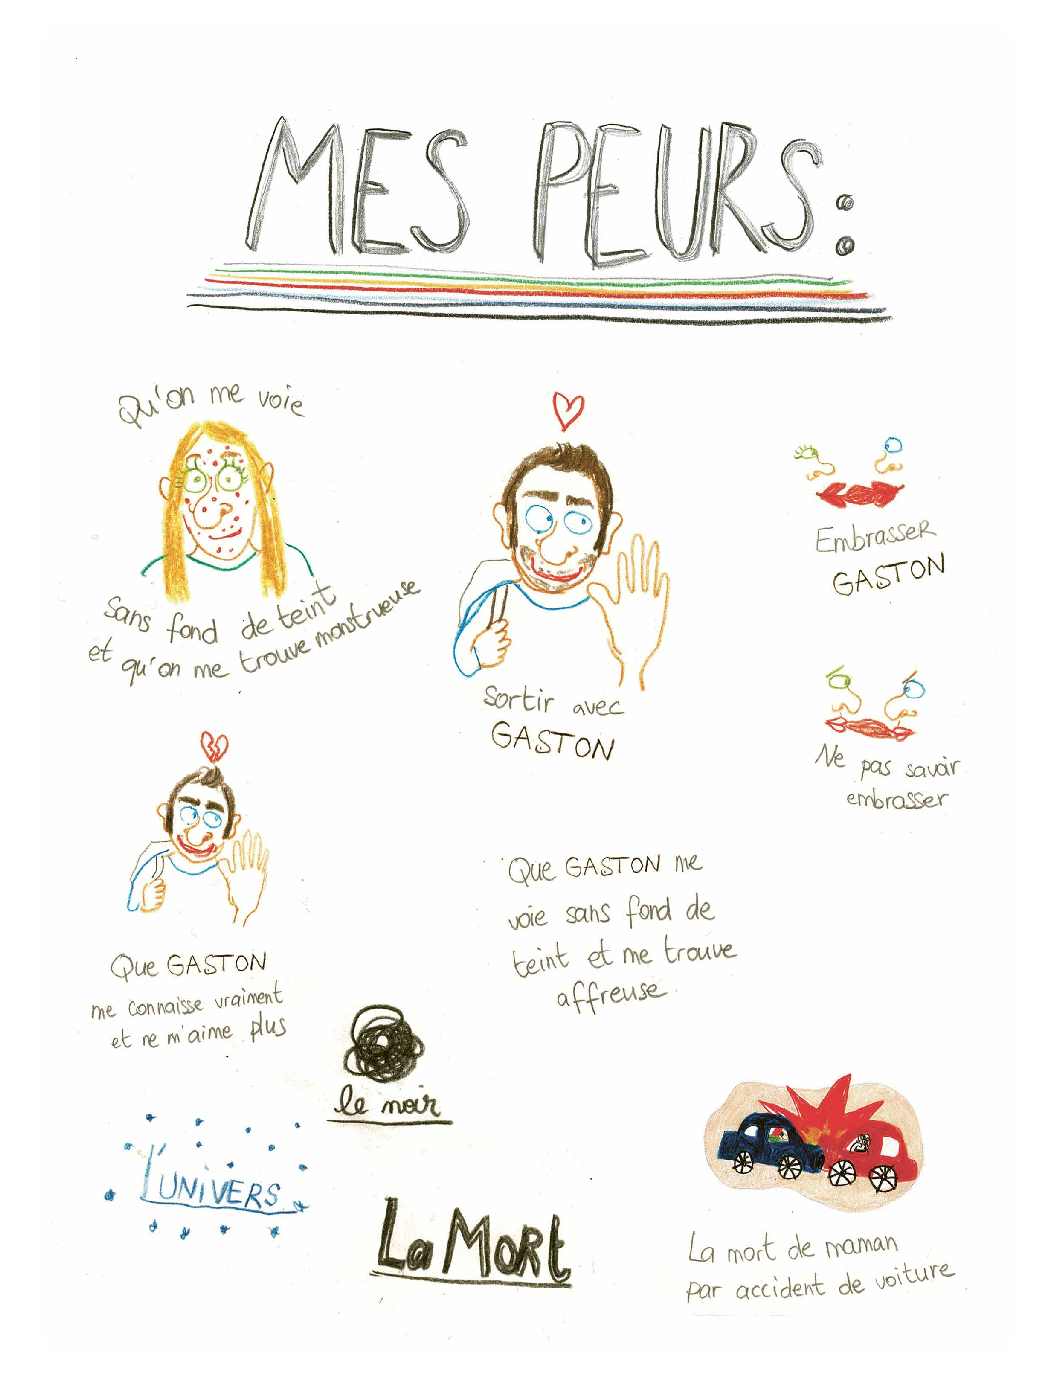 MES PEURS:
Qu'on me voie
sans fond de teint
et qu'on me trouve monstrueuse
Sortir avec
GASTON
Embrasser
GASTON
Ne pas savoir
embrasser
Que GASTON
me connaisse vraiment
et ne m'aime plus
Que GASTON me
voie sans fond de
teint et me trouve
affreuse.
le noir
L'UNIVERS
La MORt
La mort de maman
par accident de voiture